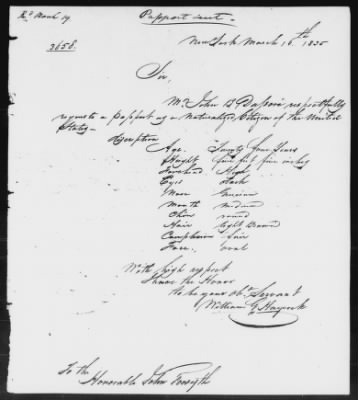 Rd March 19
Passport sent.
3658.
New York March 16th 1835
Sir,
Mr John B respectfully
requests a Passport as a Naturalized Citizen of the United
States—
Description
Age. Twenty four Years
Height five feet five inches
Forehead High
Eyes Dark
Nose Grecian
Mouth medium
Chin round
Hair light Brown
Complexion fair
Face. oval
With high respect
I have the Honor
to be your obt Servant
William
To the
Honorable John Forsyth